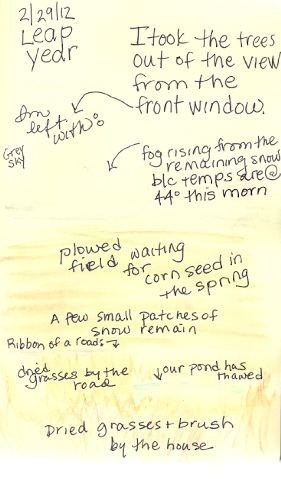 2/29/12
Leap
year
I took the trees
out of the view
from the
front window.
Im
left
with:
Grey
sky
fog rising from the
remaining snow
b/c temps are @
44° this morn
plowed waiting
field for corn seed in
the spring
A few small patches of
snow remain
Ribbon of a road→
dried
grasses by the
road
↓our pond has
thawed
Dried grasses + brush
by the house